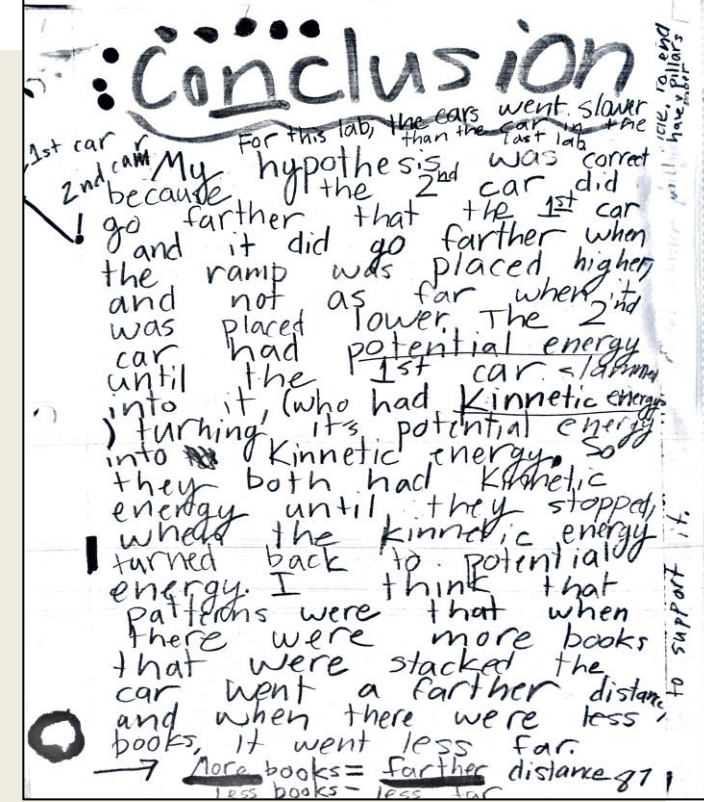 Conclusion
For this lab, the cars went slower
than the car in the
last lab
1st car
2nd car
My hypothesis was correct
because the 2nd car did
go farther that the 1st car
and it did go farther when
the ramp was placed higher,
and not as far when it
was placed lower. The 2nd
car had potential energy
until the 1st car slammed
into it, (who had Kinnetic energy
) turning it's potential energy
into Kinnetic energy. So
they both had Kinnetic
energy until they stopped,
when the kinnetic energy
turned back to potential
energy. I think that
patterns were that when
there were more books
that were stacked the
car went a farther distance,
and when there were less
books, it went less far.
→ More books = farther distance
less books - less far
will
have pillars
to support it.